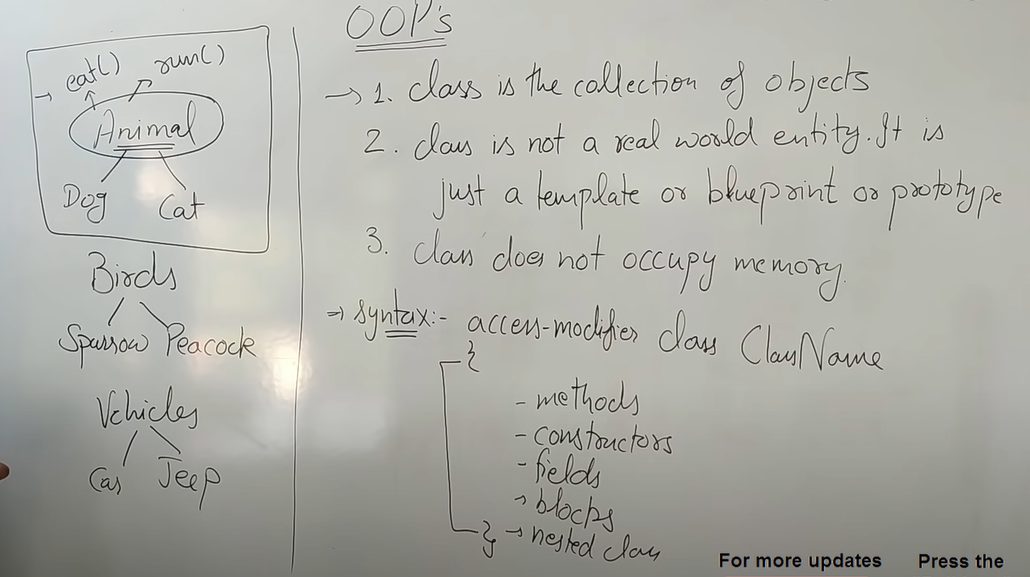 OOP's
eat() run()
Animal
Dog Cat
Birds
Sparrow Peacock
Vehicles
Car Jeep
→ 1. class is the collection of objects
2. class is not a real world entity. It is
just a template or blueprint or prototype
3. class does not occupy memory.
→ Syntax:- access-modifier class ClassName
{
- methods
- constructors
- fields
→ blocks
} → nested class
For more updates Press the